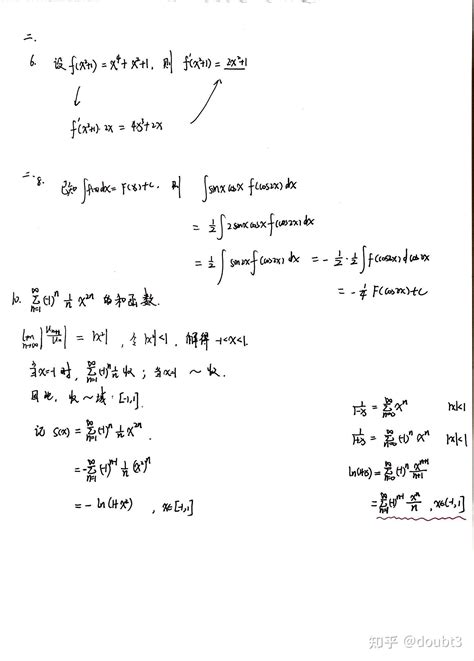 二.
6. 设 f(x²+1) = x⁴ + x² + 1, 则 f'(x²+1) = 2x²+1
f'(x²+1)·2x = 4x³+2x
二.8. 已知 ∫f(x)dx = F(x)+C, 则 ∫sinx cosx f(cos2x) dx
= 1/2 ∫ 2sinx cosx f(cos2x) dx
= 1/2 ∫ sin2x f(cos2x) dx = - 1/2 · 1/2 ∫ f(cos2x) d cos2x
= - 1/4 F(cos2x) + C
10. ∑_{n=1}^{∞} (-1)^n 1/n x^{2n} 的和函数.
lim_{n→∞} |U_{n+1}/U_n| = |x²|, 令 |x²|<1, 解得 -1<x<1.
当 x=1 时, ∑_{n=1}^{∞} (-1)^n 1/n 收; 当 x=-1 ~ 收.
因此, 收~域: [-1,1].
记 S(x) = ∑_{n=1}^{∞} (-1)^n 1/n x^{2n}
= -∑_{n=1}^{∞} (-1)^{n-1} 1/n (x²)^n
= - ln(1+x²), x∈[-1,1]
1/(1-x) = ∑_{n=0}^{∞} x^n |x|<1
1/(1+x) = ∑_{n=0}^{∞} (-1)^n x^n |x|<1
ln(1+x) = ∑_{n=0}^{∞} (-1)^n x^{n+1}/(n+1)
= ∑_{n=1}^{∞} (-1)^{n-1} x^n/n, x∈(-1,1]
知乎 @doubt3